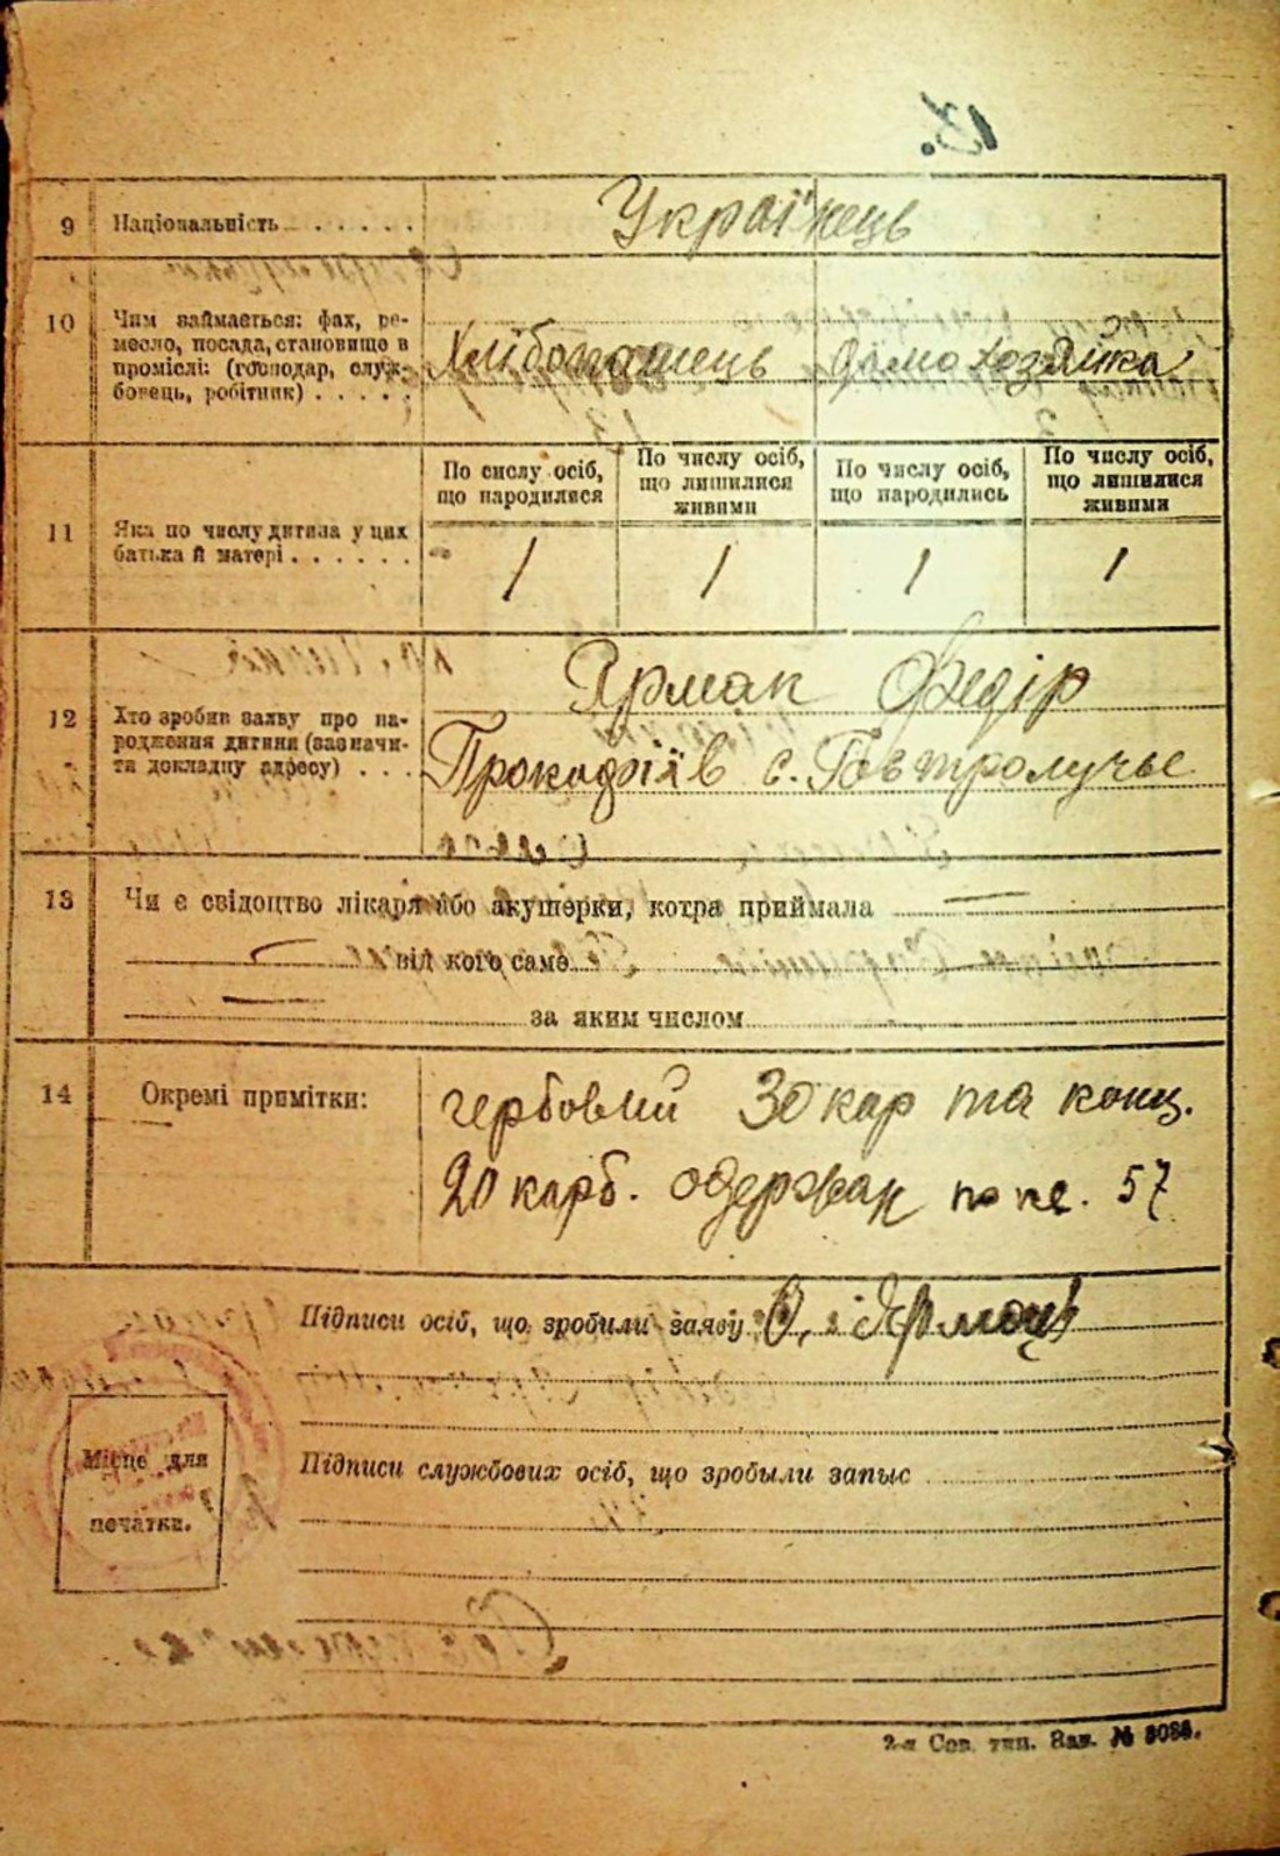 13.
9 Національність . . . . . . Українець
10 Чим займається: фах, ре-
месло, посада, становище в
промислі: (господар, служ-
бовець, робітник) . . . . .
Хлібопашець домохозяйка
11 Яка по числу дитина у цих
батька й матері . . . . . .
По сислу осіб,
що народилися
По числу осіб,
що лишилися
живими
По числу осіб,
що народились
По числу осіб,
що лишилися
живими
1 1 1 1
12 Хто зробив заяву про на-
родження дитини (зазначи-
ти докладну адресу) . . .
Ярмак Федір
Прокофіїв с. Говтролучье
13 Чи є свідоцтво лікаря або акушерки, котра приймала
від кого саме
за яким числом
14 Окремі примітки:
гербовий 30 кар та канц.
20 карб. одержан по кв. 57
Підписи осіб, що зробили заяву
Підписи службових осіб, що зробыли запыс
Місце для
печатки.
2-я Сов. тип. Зак. №